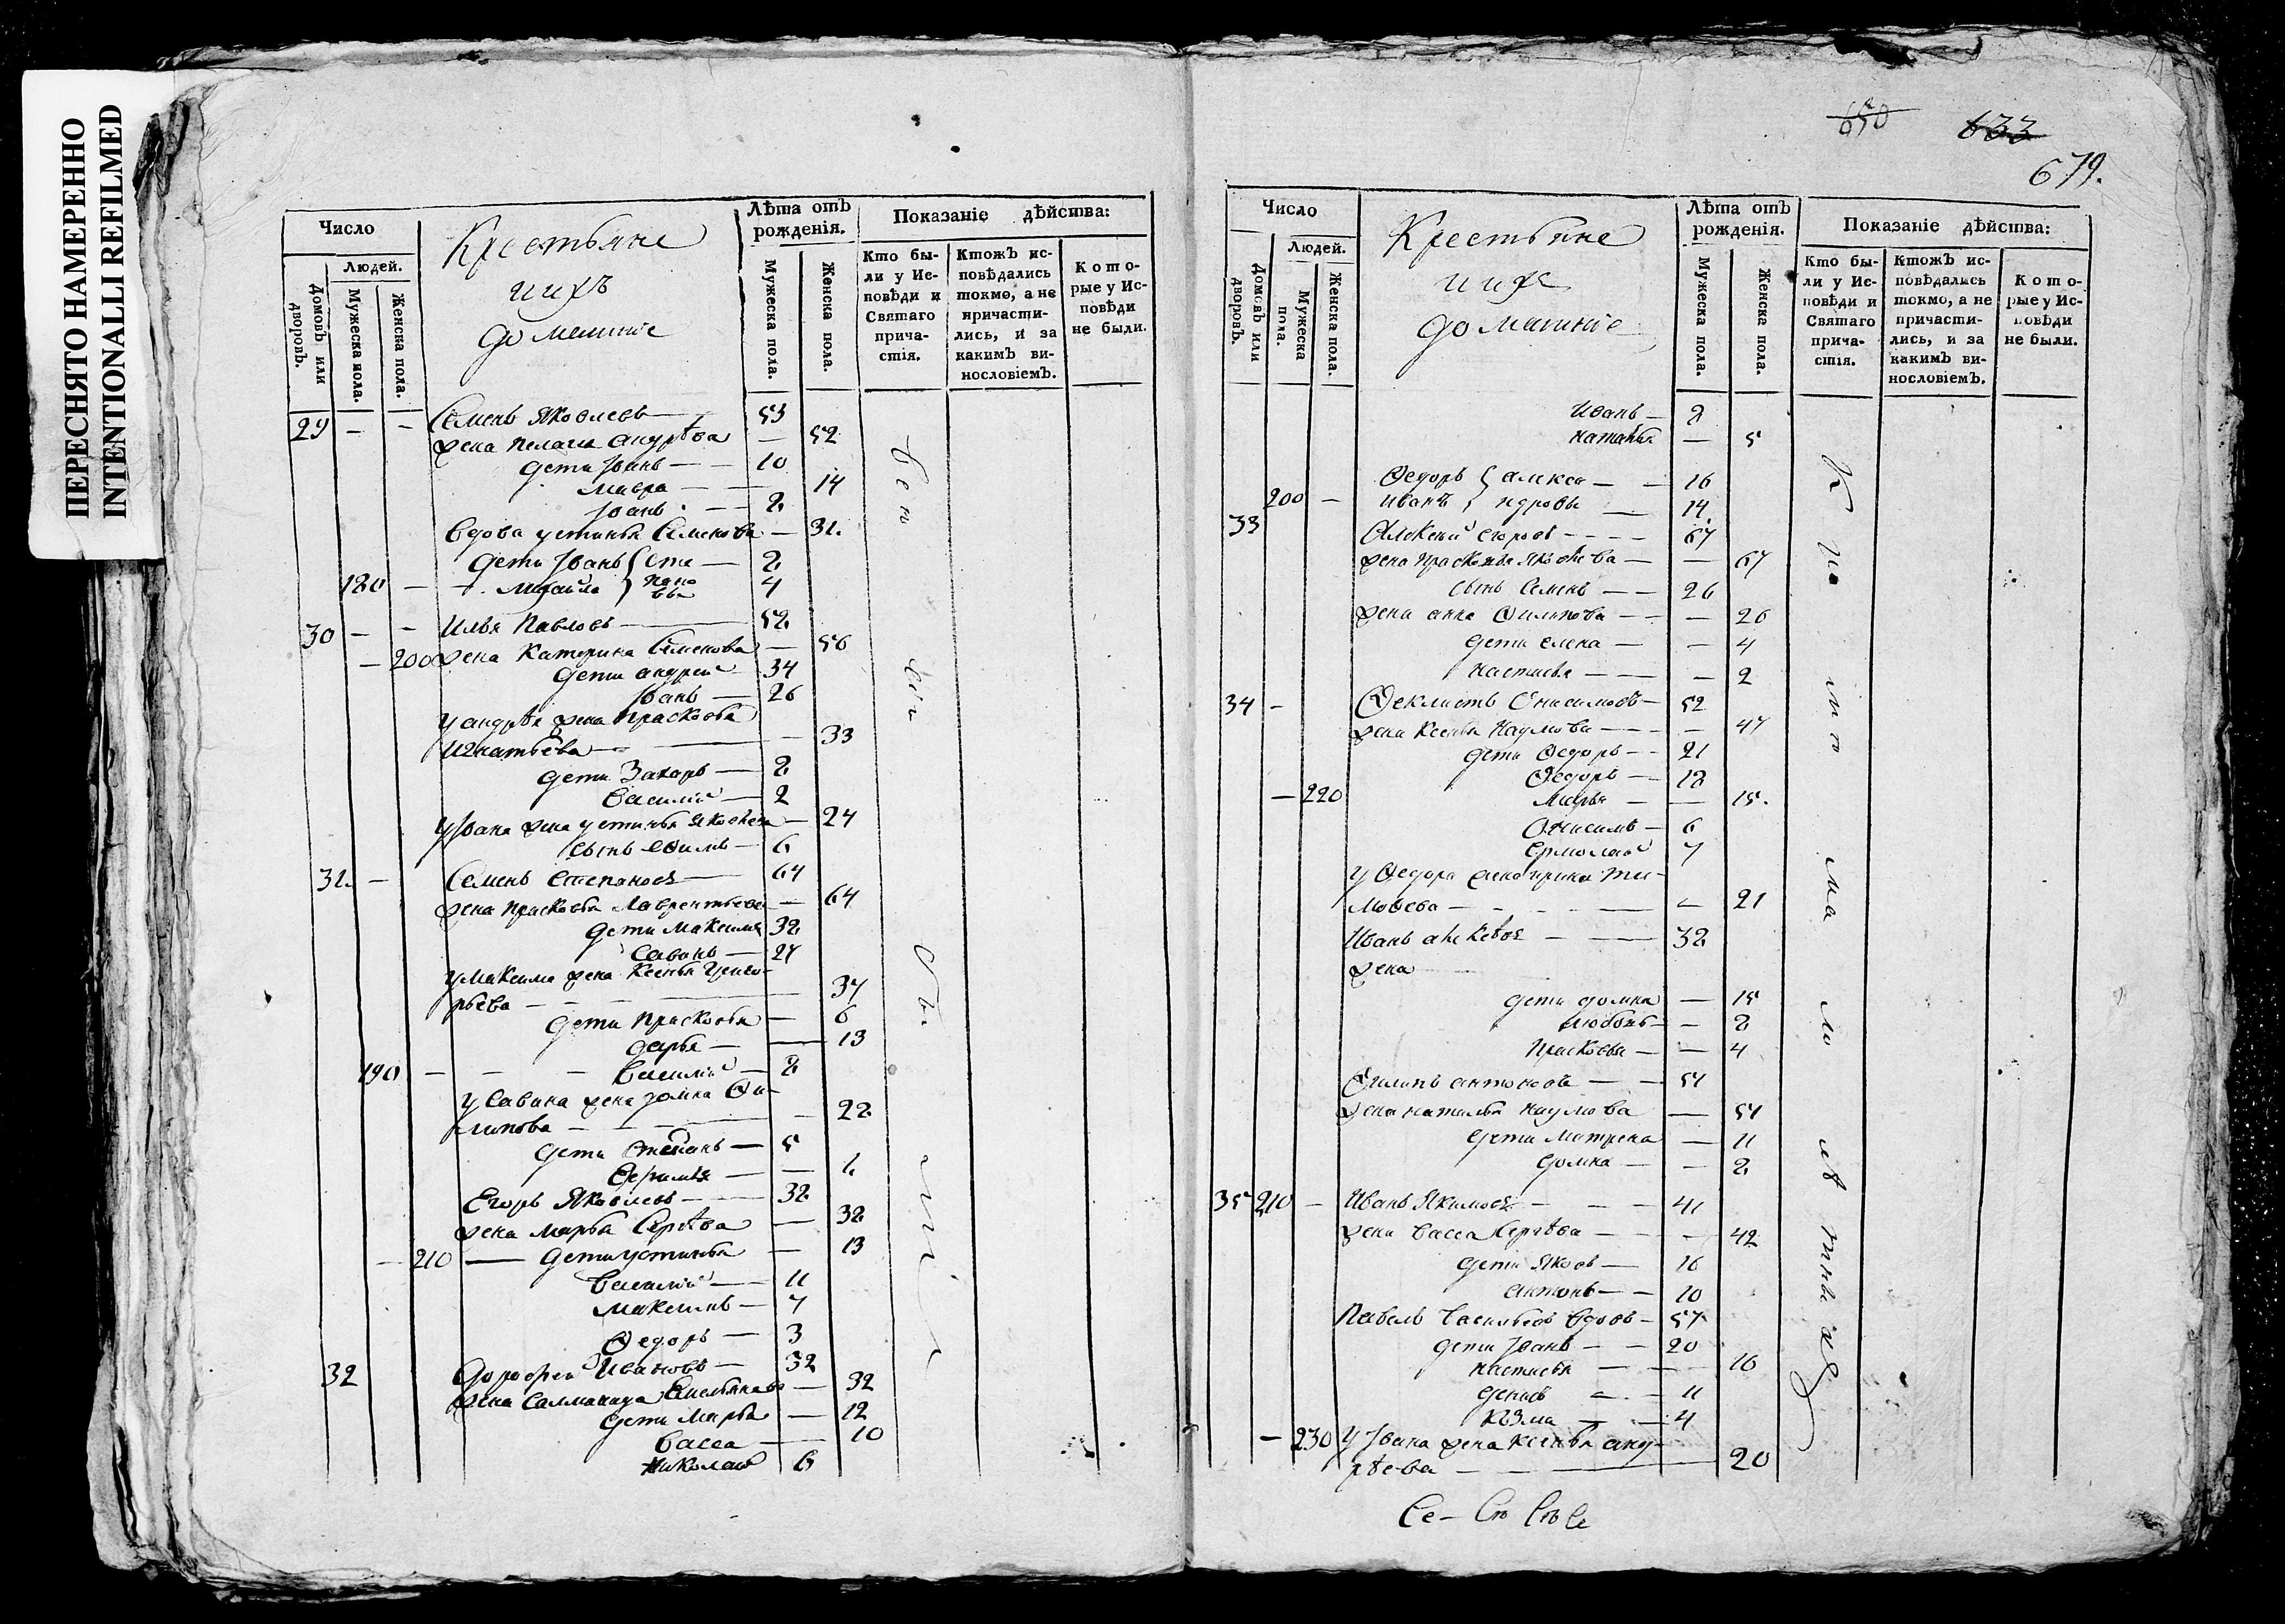 ПЕРЕСНЯТО НАМЕРЕННО
INTENTIONALLI REFILMED
Число
Людей.
Домовъ или дворовъ.
Мужеска пола.
Женска пола.
Крестьяне
ихъ
домашніе
Лѣта отъ рожденія.
Мужеска пола.
Женска пола.
Показаніе дѣйства:
Кто были у Исповѣди и Святаго причастія.
Ктожъ исповѣдались токмо, а не причастились, и за какимъ винословіемъ.
Которые у Исповѣди не были.
29 — — Семенъ Яковлевъ — 53
жена Пелагея андрѣева — 52
дети Iванъ — — 10
мавра — — 14
Iванъ — — 2
вдова устинья Семенова — 31.
дети Iванъ — 2
180 — Михайла 4
30 — — Илья Павловъ — 52
— 200 жена Катерина Семенова — 56
дети андрей 34
Iванъ — 26
у андрѣя жена Праскова
Игнатьева — — 33
дети Захаръ — 2
василий — 2
у Iвана жена устинья Яковлева — 24
сынъ — 6
31. — Семенъ Степановъ — 64
жена Прасковья Лаврентьева — 64
дети Максимъ 32
Саванъ — 27
у максима жена Ксенья Григо-
рьева — — 37
дети Прасковья — 6
дарья — 13
190 — — — василий — 2
у Савана жена домна Фи-
липова — — 22
дети степанъ — 5
— 1
Егоръ Яковлевъ — 32
жена марья Сергѣва — 32
— 210 — дети устинья — 13
василий — 11
максимъ — 7
Федоръ — 3
32 дорофеи Ивановъ — 32
жена Саламанида Емельянова — 32
дети Марья — 12
васса — 10
николай 6
650
633
679.
Число
Людей.
Домовъ или дворовъ.
Мужеска пола.
Женска пола.
Крестьяне
ихъ
домашніе
Лѣта отъ рожденія.
Мужеска пола.
Женска пола.
Показаніе дѣйства:
Кто были у Исповѣди и Святаго причастія.
Ктожъ исповѣдались токмо, а не причастились, и за какимъ винословіемъ.
Которые у Исповѣди не были.
Иванъ — 2
наталья — 5
Федоръ } алекса — — 16
200 — иванъ } ндровы — 14
33 Алексей егоровъ — — 67
жена Прасковья Яковлева — — 67
сынъ Семенъ — — 26
жена анна Филипова — — 26
дети елена — — 4
настасья — — 2
34 — Феклистъ Онисимовъ — 52
жена Ксенья Наумова — — 47
дети Федоръ — 21
Федоръ — 12
— 220 марья — — 15.
Онисимъ — 6
Ермолай 7
у Федора жена ирина ти-
мофеева — — — 21
Иванъ — — 32
жена
дети домна — 15
любовь — — 2
Прасковья — — 4
Филипъ антоновъ — — 57
жена наталья наумова — 57
дети матрена — 11
домна — — 2
35 210 — Иванъ Якимовъ — — — 41
жена васса Сергѣва — — 42
дети Яковъ — 16
антонъ — — 10
Павелъ васильевъ вдовъ — 57
дети Iванъ — — 20
настасья — — 16
денисъ — — 11
Кузма — — 4
— 230 у Iвана жена ксенья анд-
рѣева — — — 20